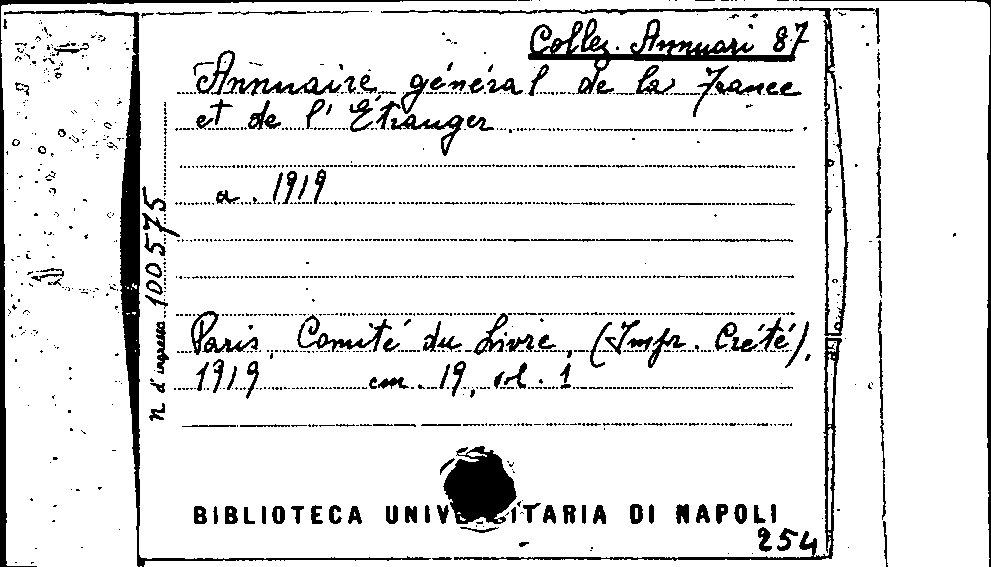 Collez. Annuari 87
Annuaire général de la France
et de l'Étranger
a. 1919
n d'ingresso 100575
Paris, Comité du Livre, (Impr. Crété),
1919 cm. 19, vol. 1
BIBLIOTECA UNIVERSITARIA DI NAPOLI
254